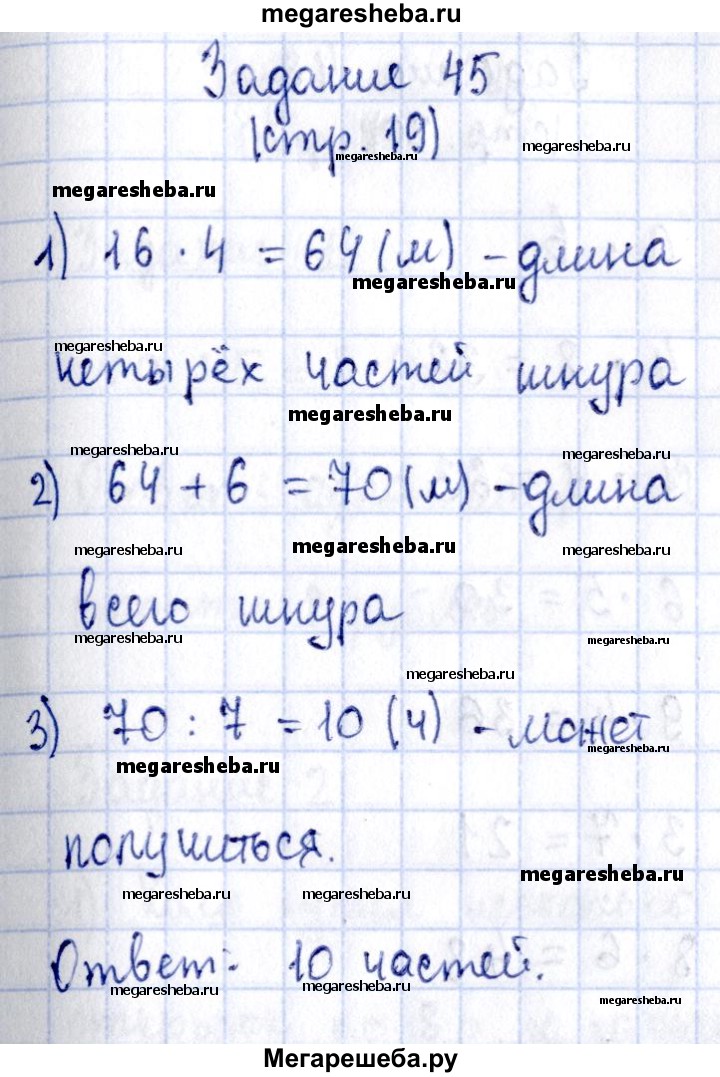 megaresheba.ru
Задание 45
(стр. 19)
megaresheba.ru
megaresheba.ru
megaresheba.ru
1) 16 · 4 = 64 (м) - длина
megaresheba.ru
megaresheba.ru
четырёх частей шнура
megaresheba.ru
megaresheba.ru
megaresheba.ru
2) 64 + 6 = 70 (м) - длина
megaresheba.ru
megaresheba.ru
megaresheba.ru
всего шнура
megaresheba.ru
megaresheba.ru
megaresheba.ru
3) 70 : 7 = 10 (ч) - может
megaresheba.ru
megaresheba.ru
получиться.
megaresheba.ru
megaresheba.ru
megaresheba.ru
Ответ: 10 частей.
megaresheba.ru
megaresheba.ru
megaresheba.ru
Мегарешеба.ру